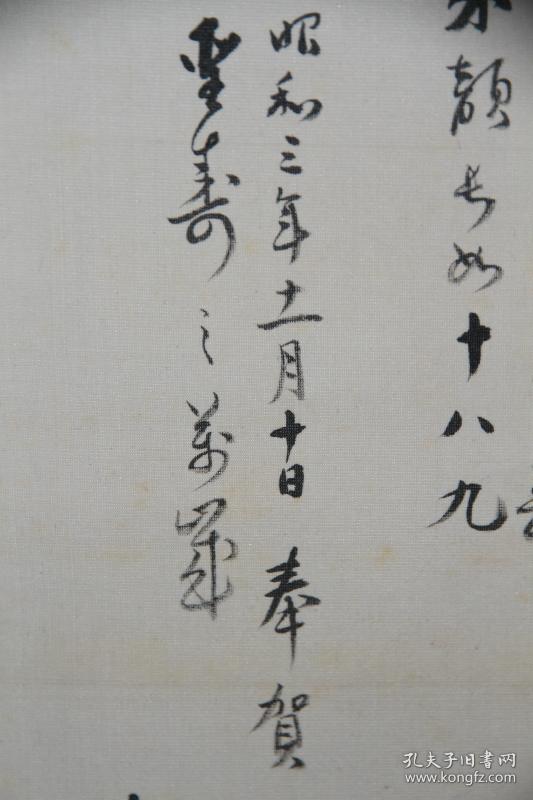 顔長如十八九
昭和三年十一月十日 奉賀
聖壽之萬歳
孔夫子旧書网
www.kongfz.com